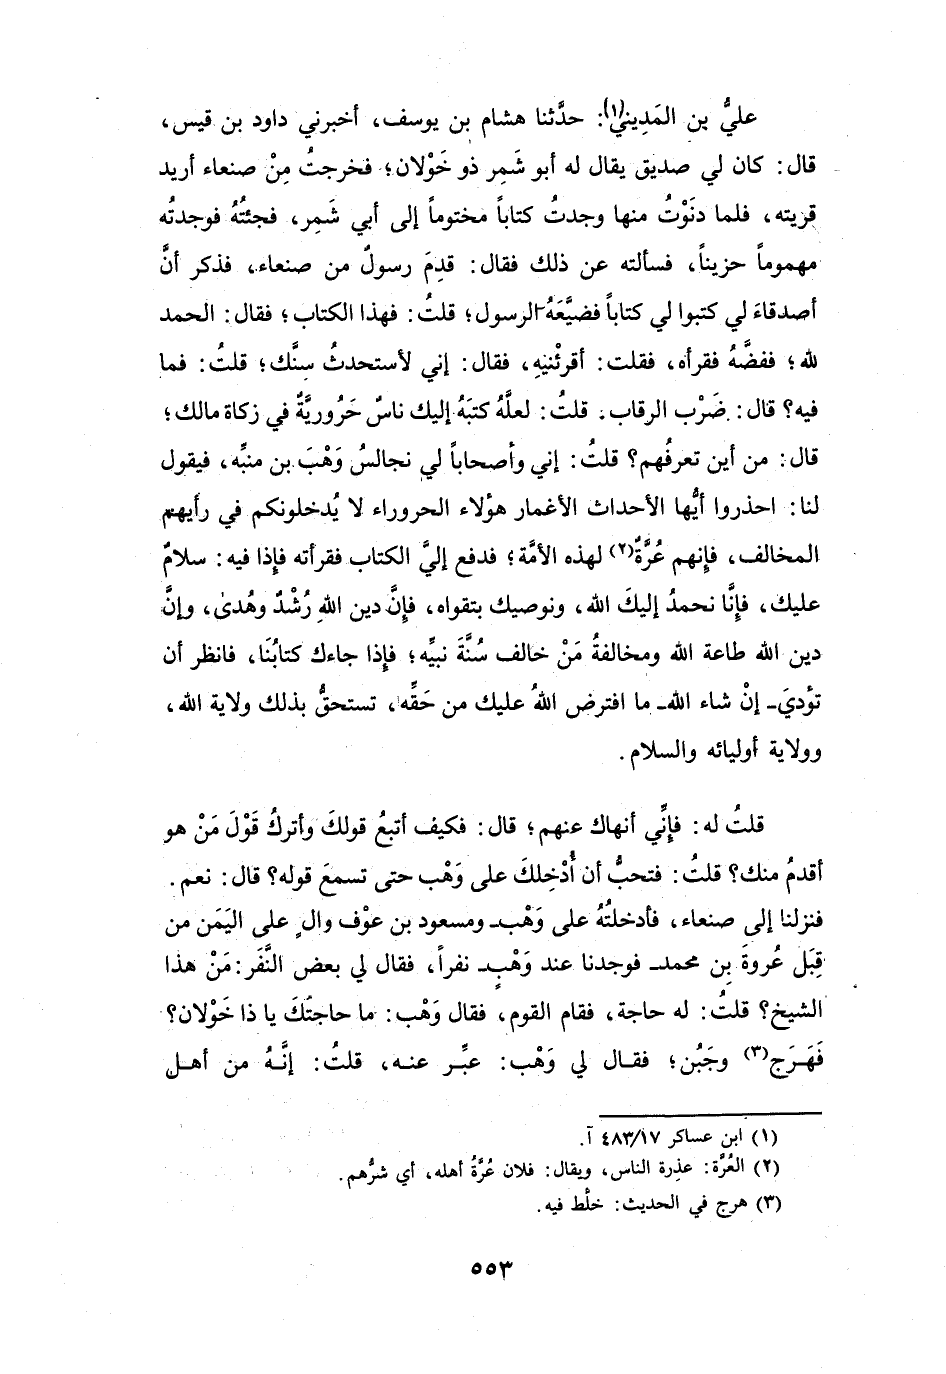 عليُّ بن المَدِيني(١): حدَّثنا هشام بن يوسف، أخبرني داود بن قيس،
قال: كان لي صديق يقال له أبو شَمِر ذو خَوْلان؛ فخرجتُ مِنْ صنعاء أريد
قريته، فلما دنَوْتُ منها وجدتُ كتاباً مختوماً إلى أبي شَمِر، فجئتُهُ فوجدتُه
مهموماً حزيناً، فسألته عن ذلك فقال: قدِمَ رسولٌ من صنعاء، فذكر أنَّ
أصدقاءَ لي كتبوا لي كتاباً فضيَّعَهُ الرسول؛ قلتُ: فهذا الكتاب؛ فقال: الحمد
لله؛ ففضَّهُ فقرأه، فقلت: أقرئْنيهِ، فقال: إني لأستحدثُ سِنَّك؛ قلتُ: فما
فيه؟ قال: ضَرْب الرقاب. قلتُ: لعلَّهُ كتبَهُ إليك ناسٌ حَرُوريَّةٌ في زكاة مالك؛
قال: من أين تعرفُهم؟ قلتُ: إني وأصحاباً لي نجالسُ وَهْبَ بن منبِّه، فيقول
لنا: احذروا أيُّها الأحداث الأغمار هؤلاء الحروراء لا يُدخلونكم في رأيهم
المخالف، فإنهم عُرَّةٌ(٢) لهذه الأمَّة؛ فدفع إليَّ الكتاب فقرأته فإذا فيه: سلامٌ
عليك، فإنَّا نحمدُ إليكَ الله، ونوصيك بتقواه، فإنَّ دين اللهِ رُشْدٌ وهُدىٰ، وإنَّ
دين الله طاعة الله ومخالفةُ مَنْ خالف سُنَّةَ نبيِّه؛ فإذا جاءك كتابُنَا، فانظر أن
تؤديَ ـ إنْ شاء الله ـ ما افترض اللهُ عليك من حَقِّه، تستحقُّ بذلك ولاية الله،
وولاية أوليائه والسلام.
قلتُ له: فإنِّي أنهاك عنهم؛ قال: فكيف أتبعُ قولكَ وأتركُ قَوْلَ مَنْ هو
أقدمُ منك؟ قلتُ: فتحبُّ أن أُدْخِلكَ على وَهْب حتى تسمعَ قوله؟ قال: نعم.
فنزلنا إلى صنعاء، فأدخلتُهُ على وَهْب ـ ومسعود بن عوْف والٍ على اليَمَن من
قِبَل عُروةَ بن محمد ـ فوجدنا عند وَهْبٍ نفراً، فقال لي بعض النَّفَر: مَنْ هذا
الشيخ؟ قلتُ: له حاجة، فقام القوم، فقال وَهْب: ما حاجتُكَ يا ذا خَوْلان؟
فَهَرَج(٣) وجَبُن؛ فقال لي وَهْب: عبِّر عنه، قلتُ: إنَّهُ من أهل
(١) ابن عساكر ٤٨٣/١٧ آ.
(٢) العُرَّة: عذِرة الناس، ويقال: فلان عُرَّةُ أهله، أي شرُّهم.
(٣) هرج في الحديث: خلَط فيه.
٥٥٣